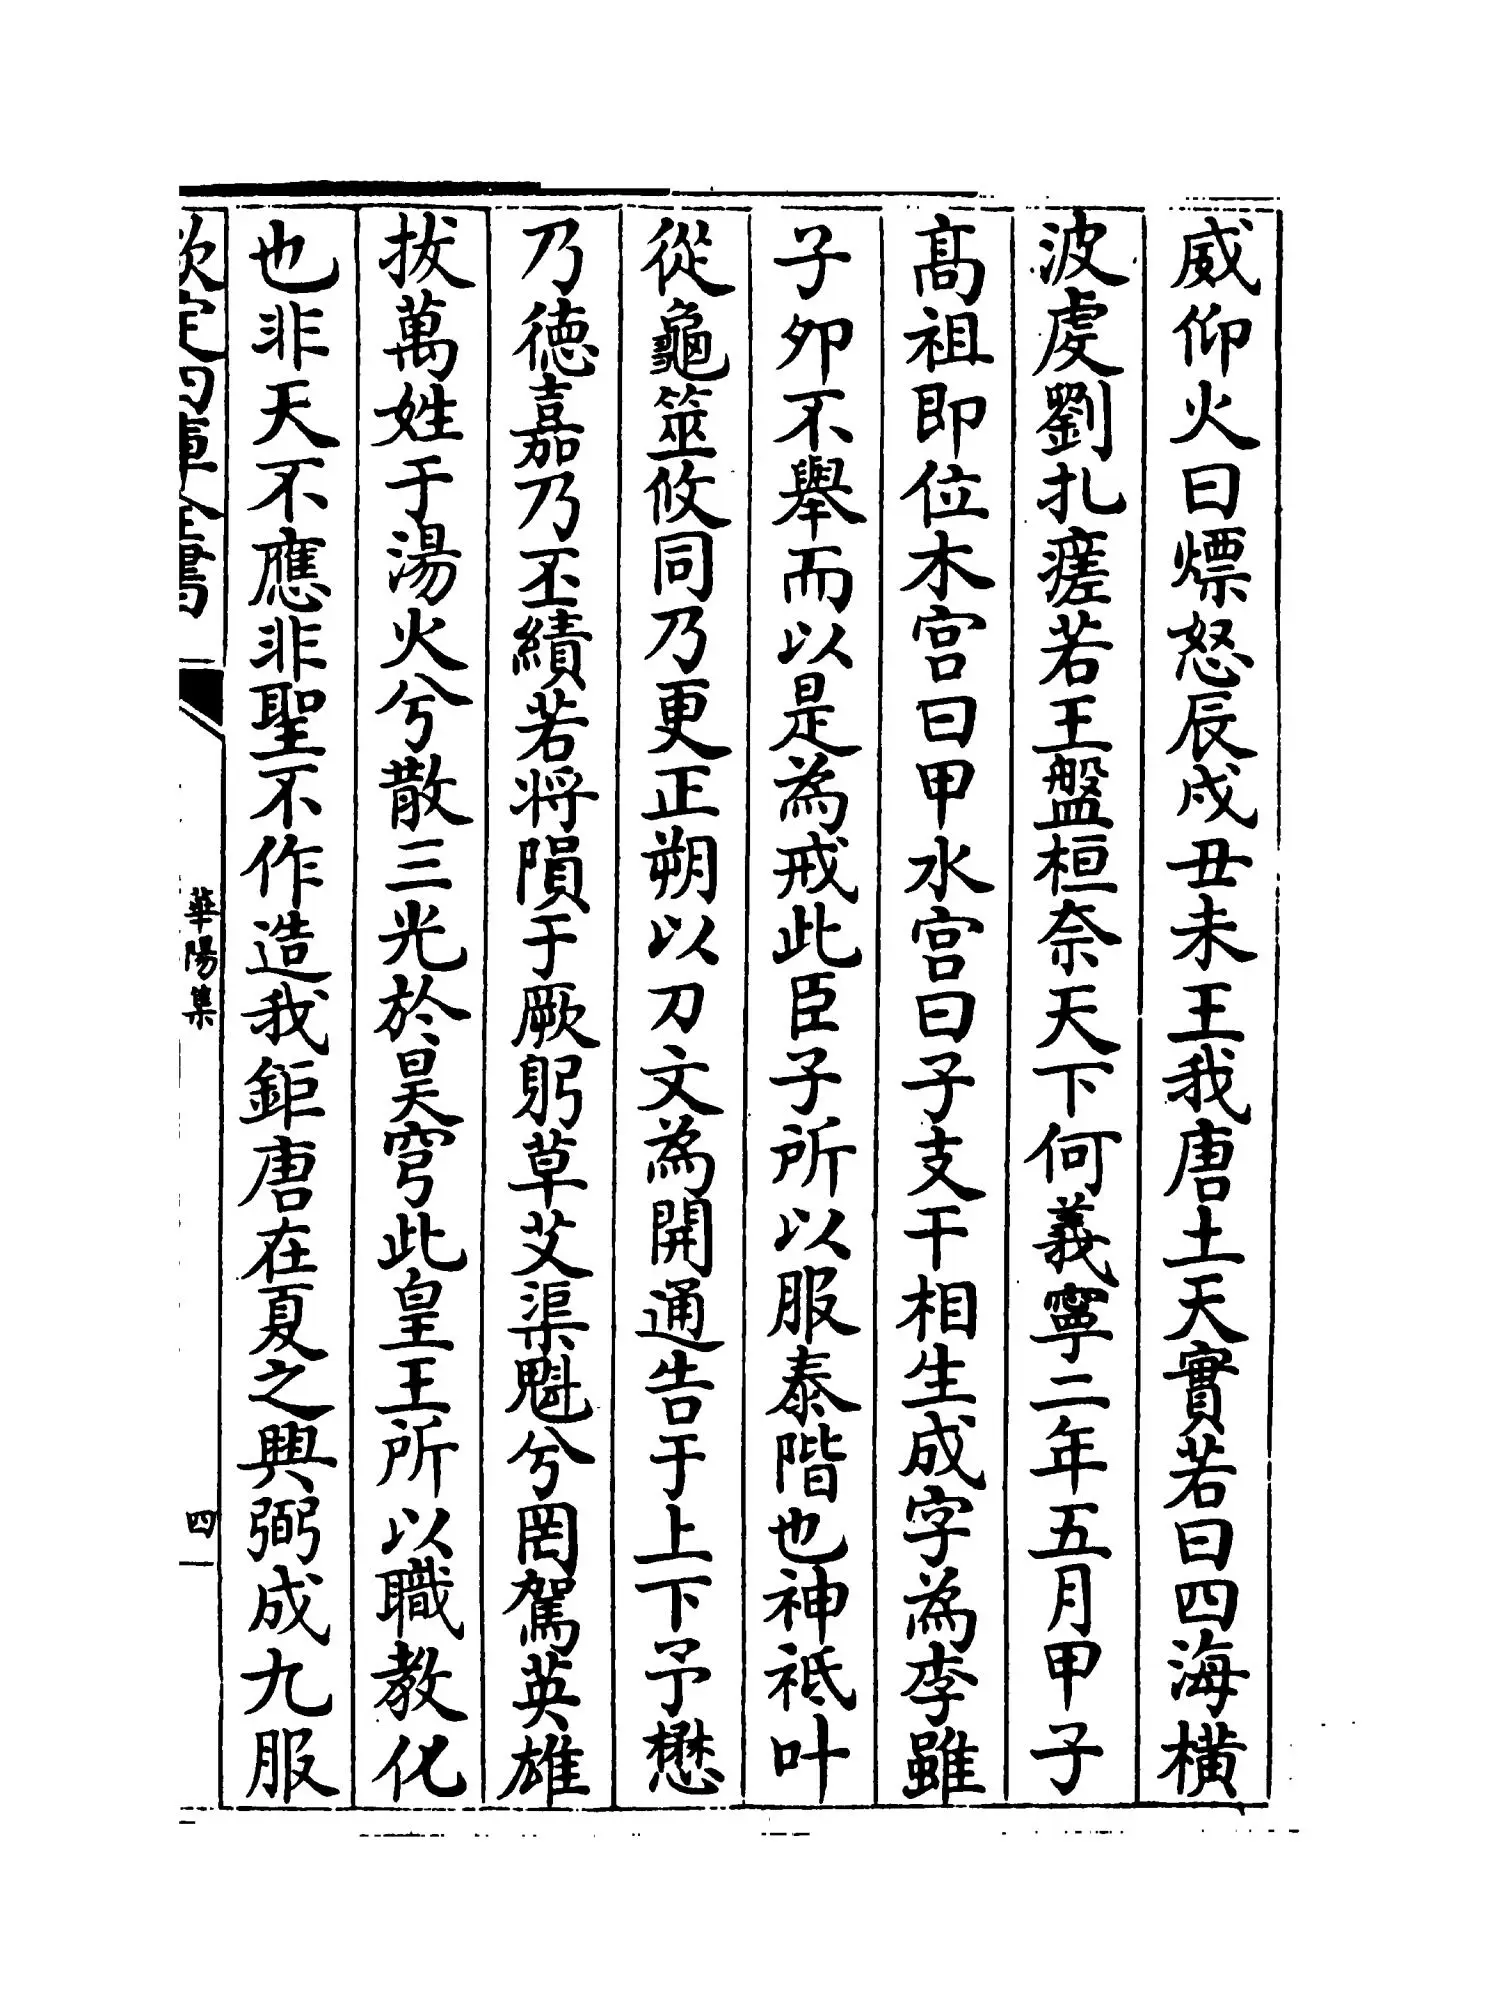 威仰火曰熛怒辰戌丑未王我唐土天實若曰四海橫
波虔劉扎瘥若王盤桓奈天下何義寧二年五月甲子
髙祖即位木宫曰甲水宫曰子支干相生成字為李雖
子夘不舉而以是為戒此臣子所以服泰階也神祗叶
從龜筮攸同乃更正朔以刀文為開通告于上下予懋
乃德嘉乃丕績若将隕于厥躬草艾渠魁兮罔駕英雄
拔萬姓于湯火兮散三光於昊穹此皇王所以職教化
也非天不應非聖不作造我鉅唐在夏之興弼成九服
欽定四庫全書
華陽集
四